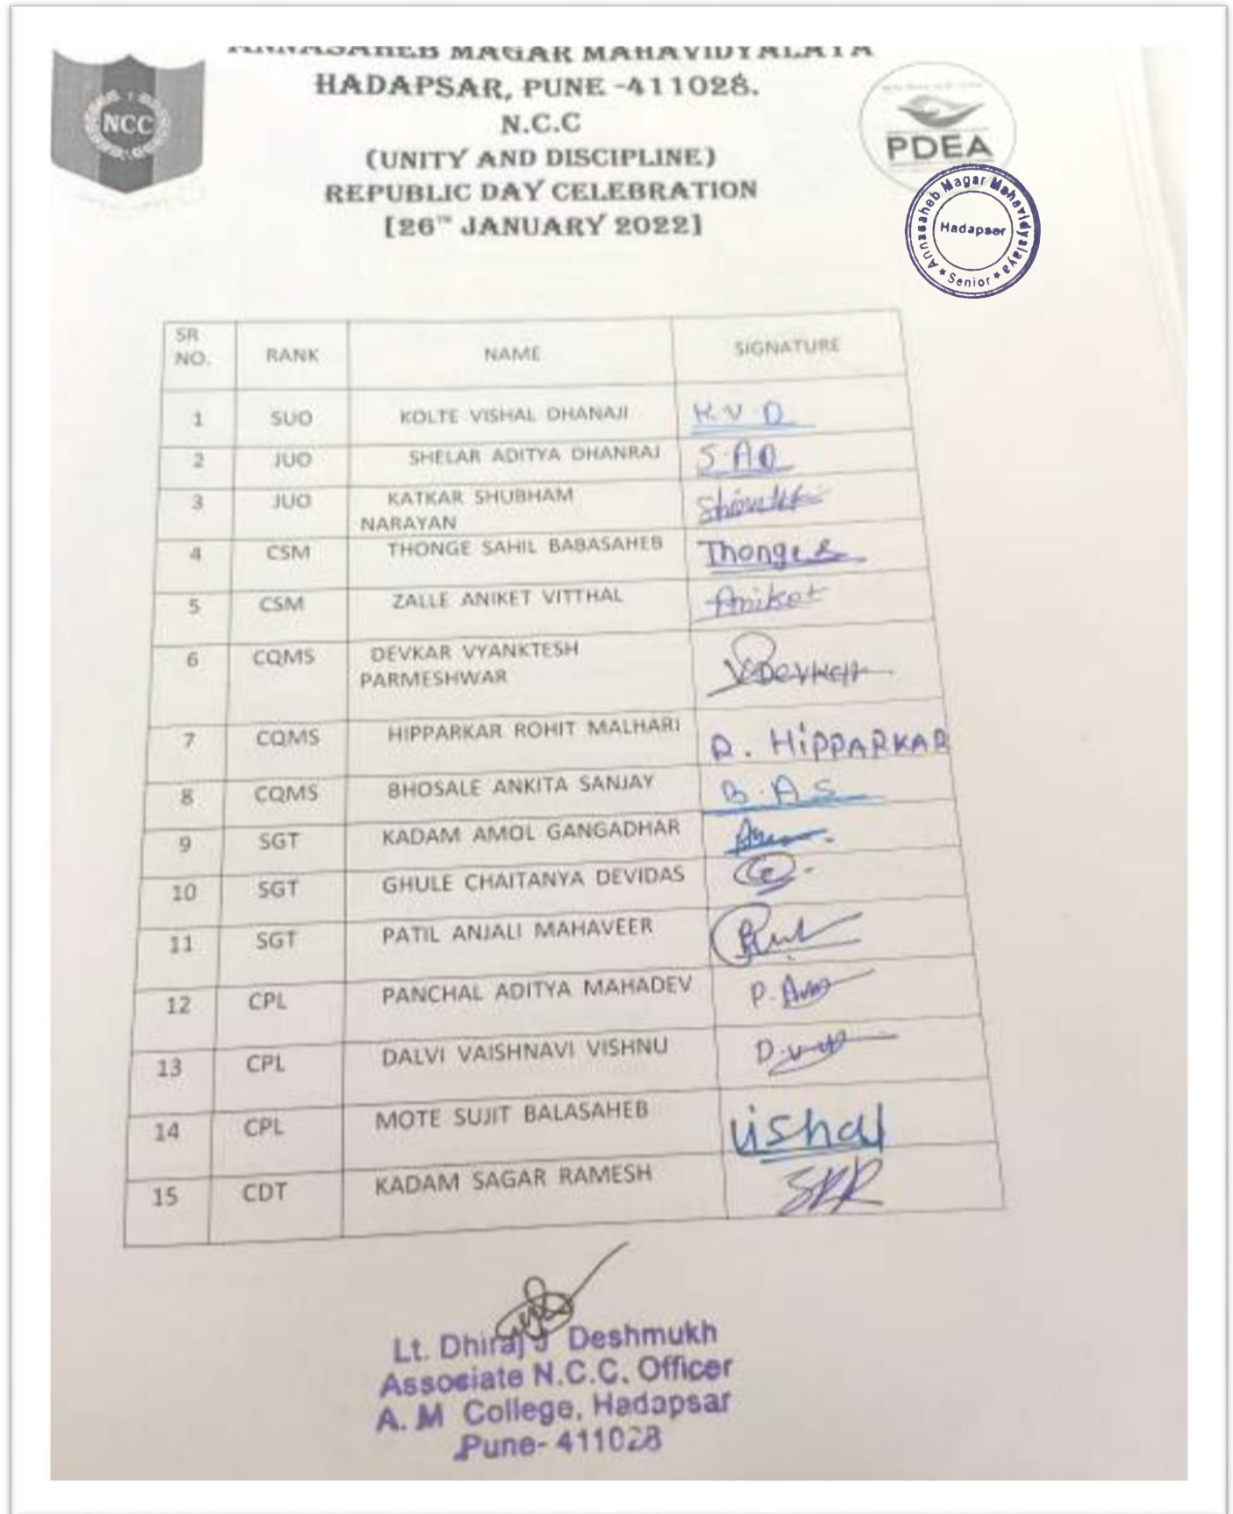 ANNASAHEB MAGAR MAHAVIDYALAYA
HADAPSAR, PUNE -411028.
N.C.C
(UNITY AND DISCIPLINE)
REPUBLIC DAY CELEBRATION
[26TH JANUARY 2022]
NCC
PDEA
Annasaheb Magar Mahavidyalaya
Hadapsar
* Senior *
SR NO. RANK NAME SIGNATURE
1 SUO KOLTE VISHAL DHANAJI K.V.D
2 JUO SHELAR ADITYA DHANRAJ S.AD
3 JUO KATKAR SHUBHAM
NARAYAN
4 CSM THONGE SAHIL BABASAHEB Thonge
5 CSM ZALLE ANIKET VITTHAL Aniket
6 CQMS DEVKAR VYANKTESH
PARMESHWAR VDevkar
7 CQMS HIPPARKAR ROHIT MALHARI R. HIPPARKAR
8 CQMS BHOSALE ANKITA SANJAY B.A.S
9 SGT KADAM AMOL GANGADHAR
10 SGT GHULE CHAITANYA DEVIDAS
11 SGT PATIL ANJALI MAHAVEER
12 CPL PANCHAL ADITYA MAHADEV
13 CPL DALVI VAISHNAVI VISHNU
14 CPL MOTE SUJIT BALASAHEB Vishal
15 CDT KADAM SAGAR RAMESH SKR
Lt. Dhiraj J Deshmukh
Associate N.C.C. Officer
A. M College, Hadapsar
Pune- 411028